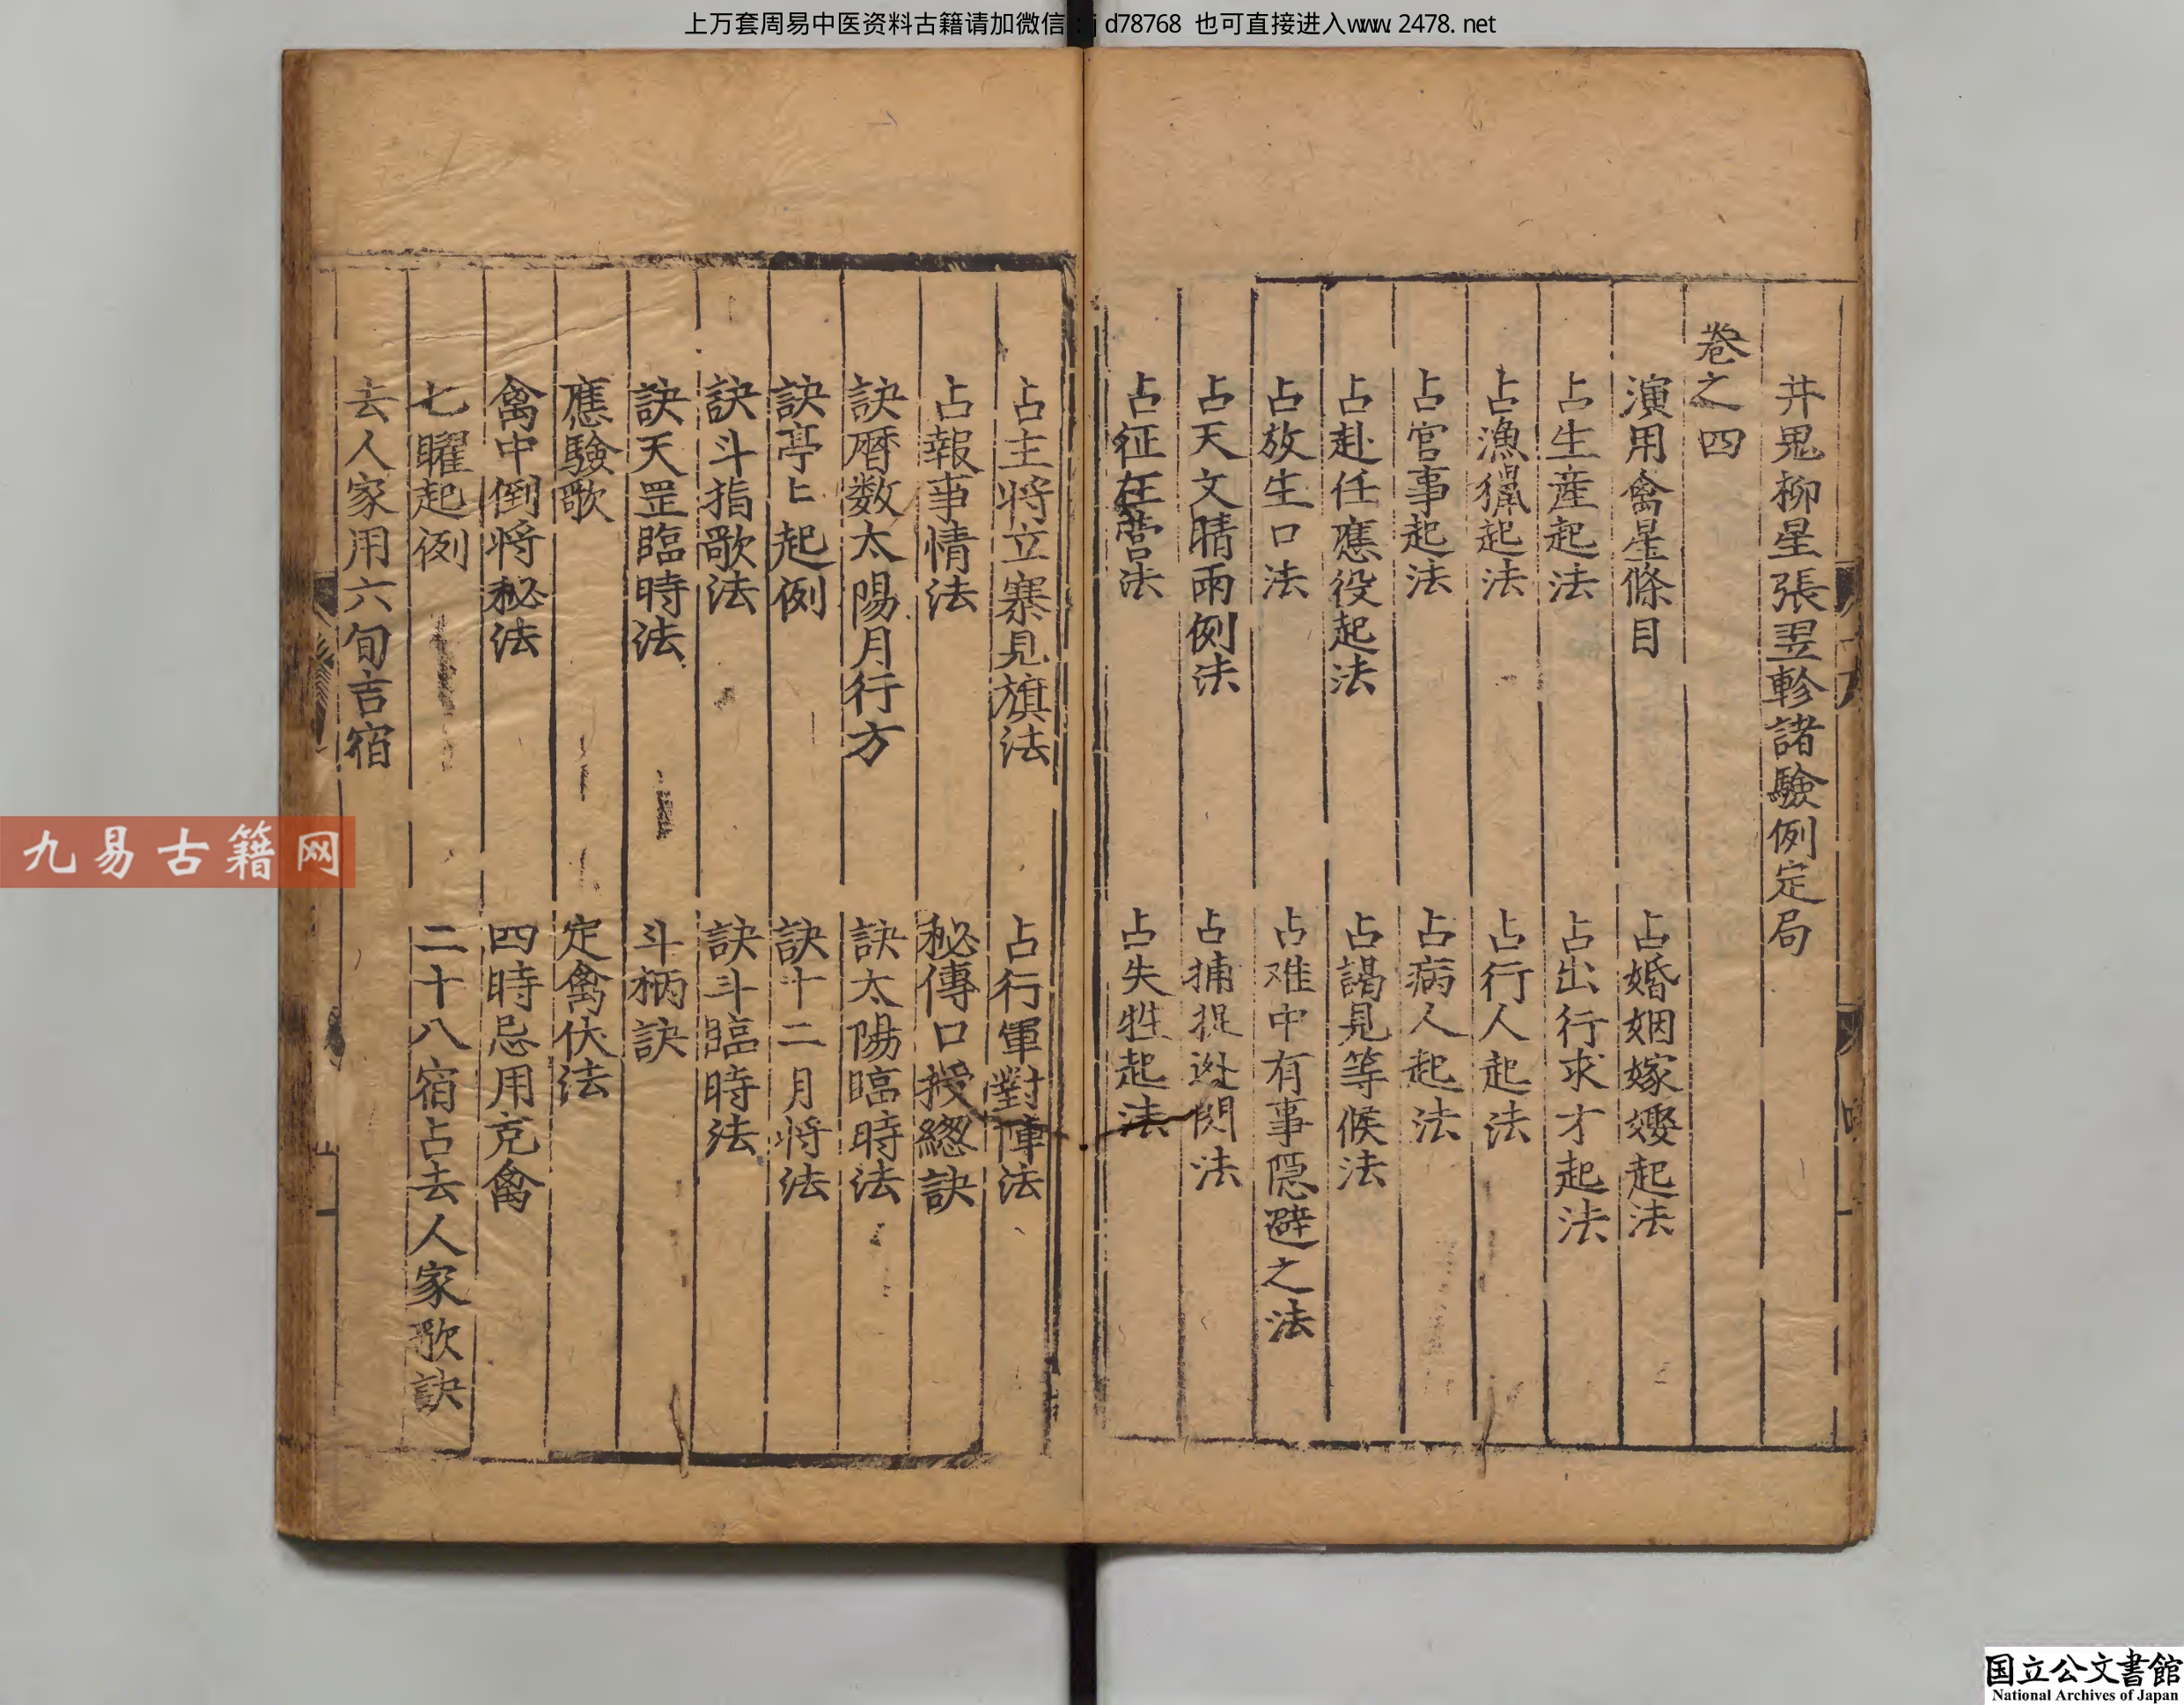 上万套周易中医资料古籍请加微信：jd78768 也可直接进入www.2478.net
井鬼柳星張翌軫諸驗例定局
卷之四
演用禽星條目
占婚姻嫁娶起法
占生產起法
占出行求才起法
占漁獵起法
占行人起法
占官事起法
占病人起法
占赴任應役起法
占謁見等候法
占放生口法
占难中有事隠避之法
占天文晴雨例法
占捕捉迯閃法
占征在营法
占失牲起法
占主将立寨見旗法
占行軍對陣法
占報事情法
秘傳口授總訣
訣曆数太陽月行方
訣太陽臨時法
訣亭〻起例
訣十二月将法
訣斗指歌法
訣斗臨時法
訣天罡臨時法
斗柄訣
應驗歌
定禽伏法
禽中倒将秘法
四時忌用克禽
七曜起例
二十八宿占去人家歌訣
去人家用六旬吉宿
九易古籍网
国立公文書館
National Archives of Japan